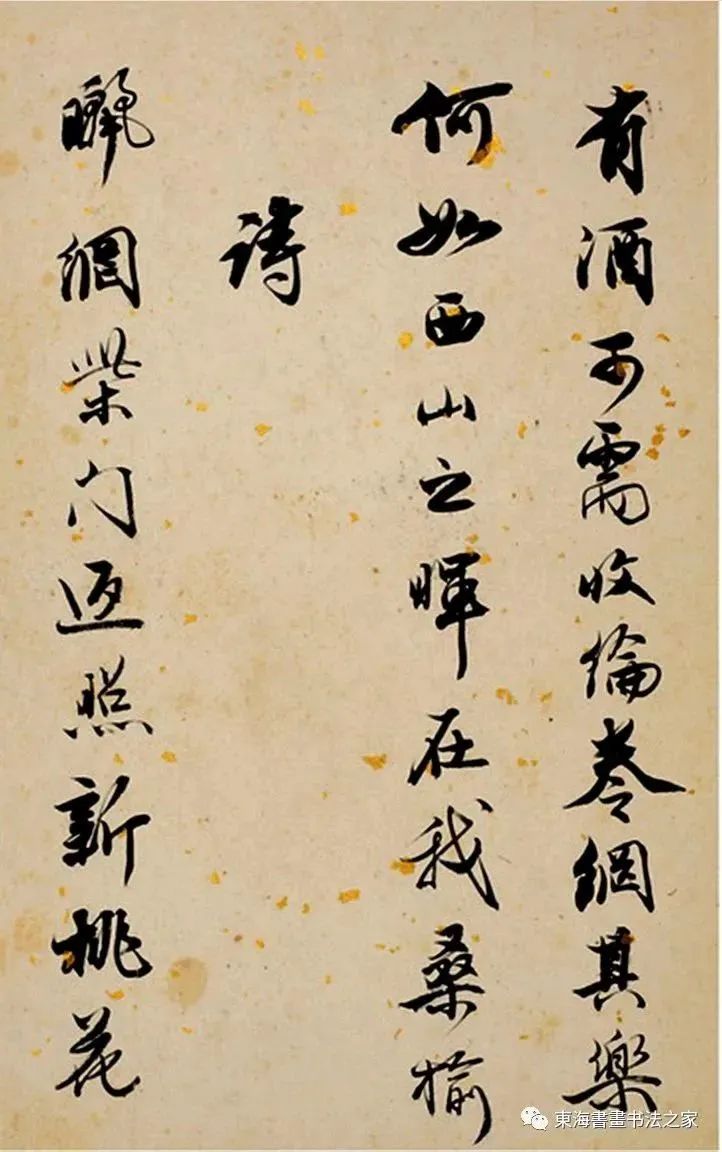 有酒可需收綸卷網其樂
何如西山之暉在我桑榆
詩
曬網柴門返照新桃花
東海書畫书法之家